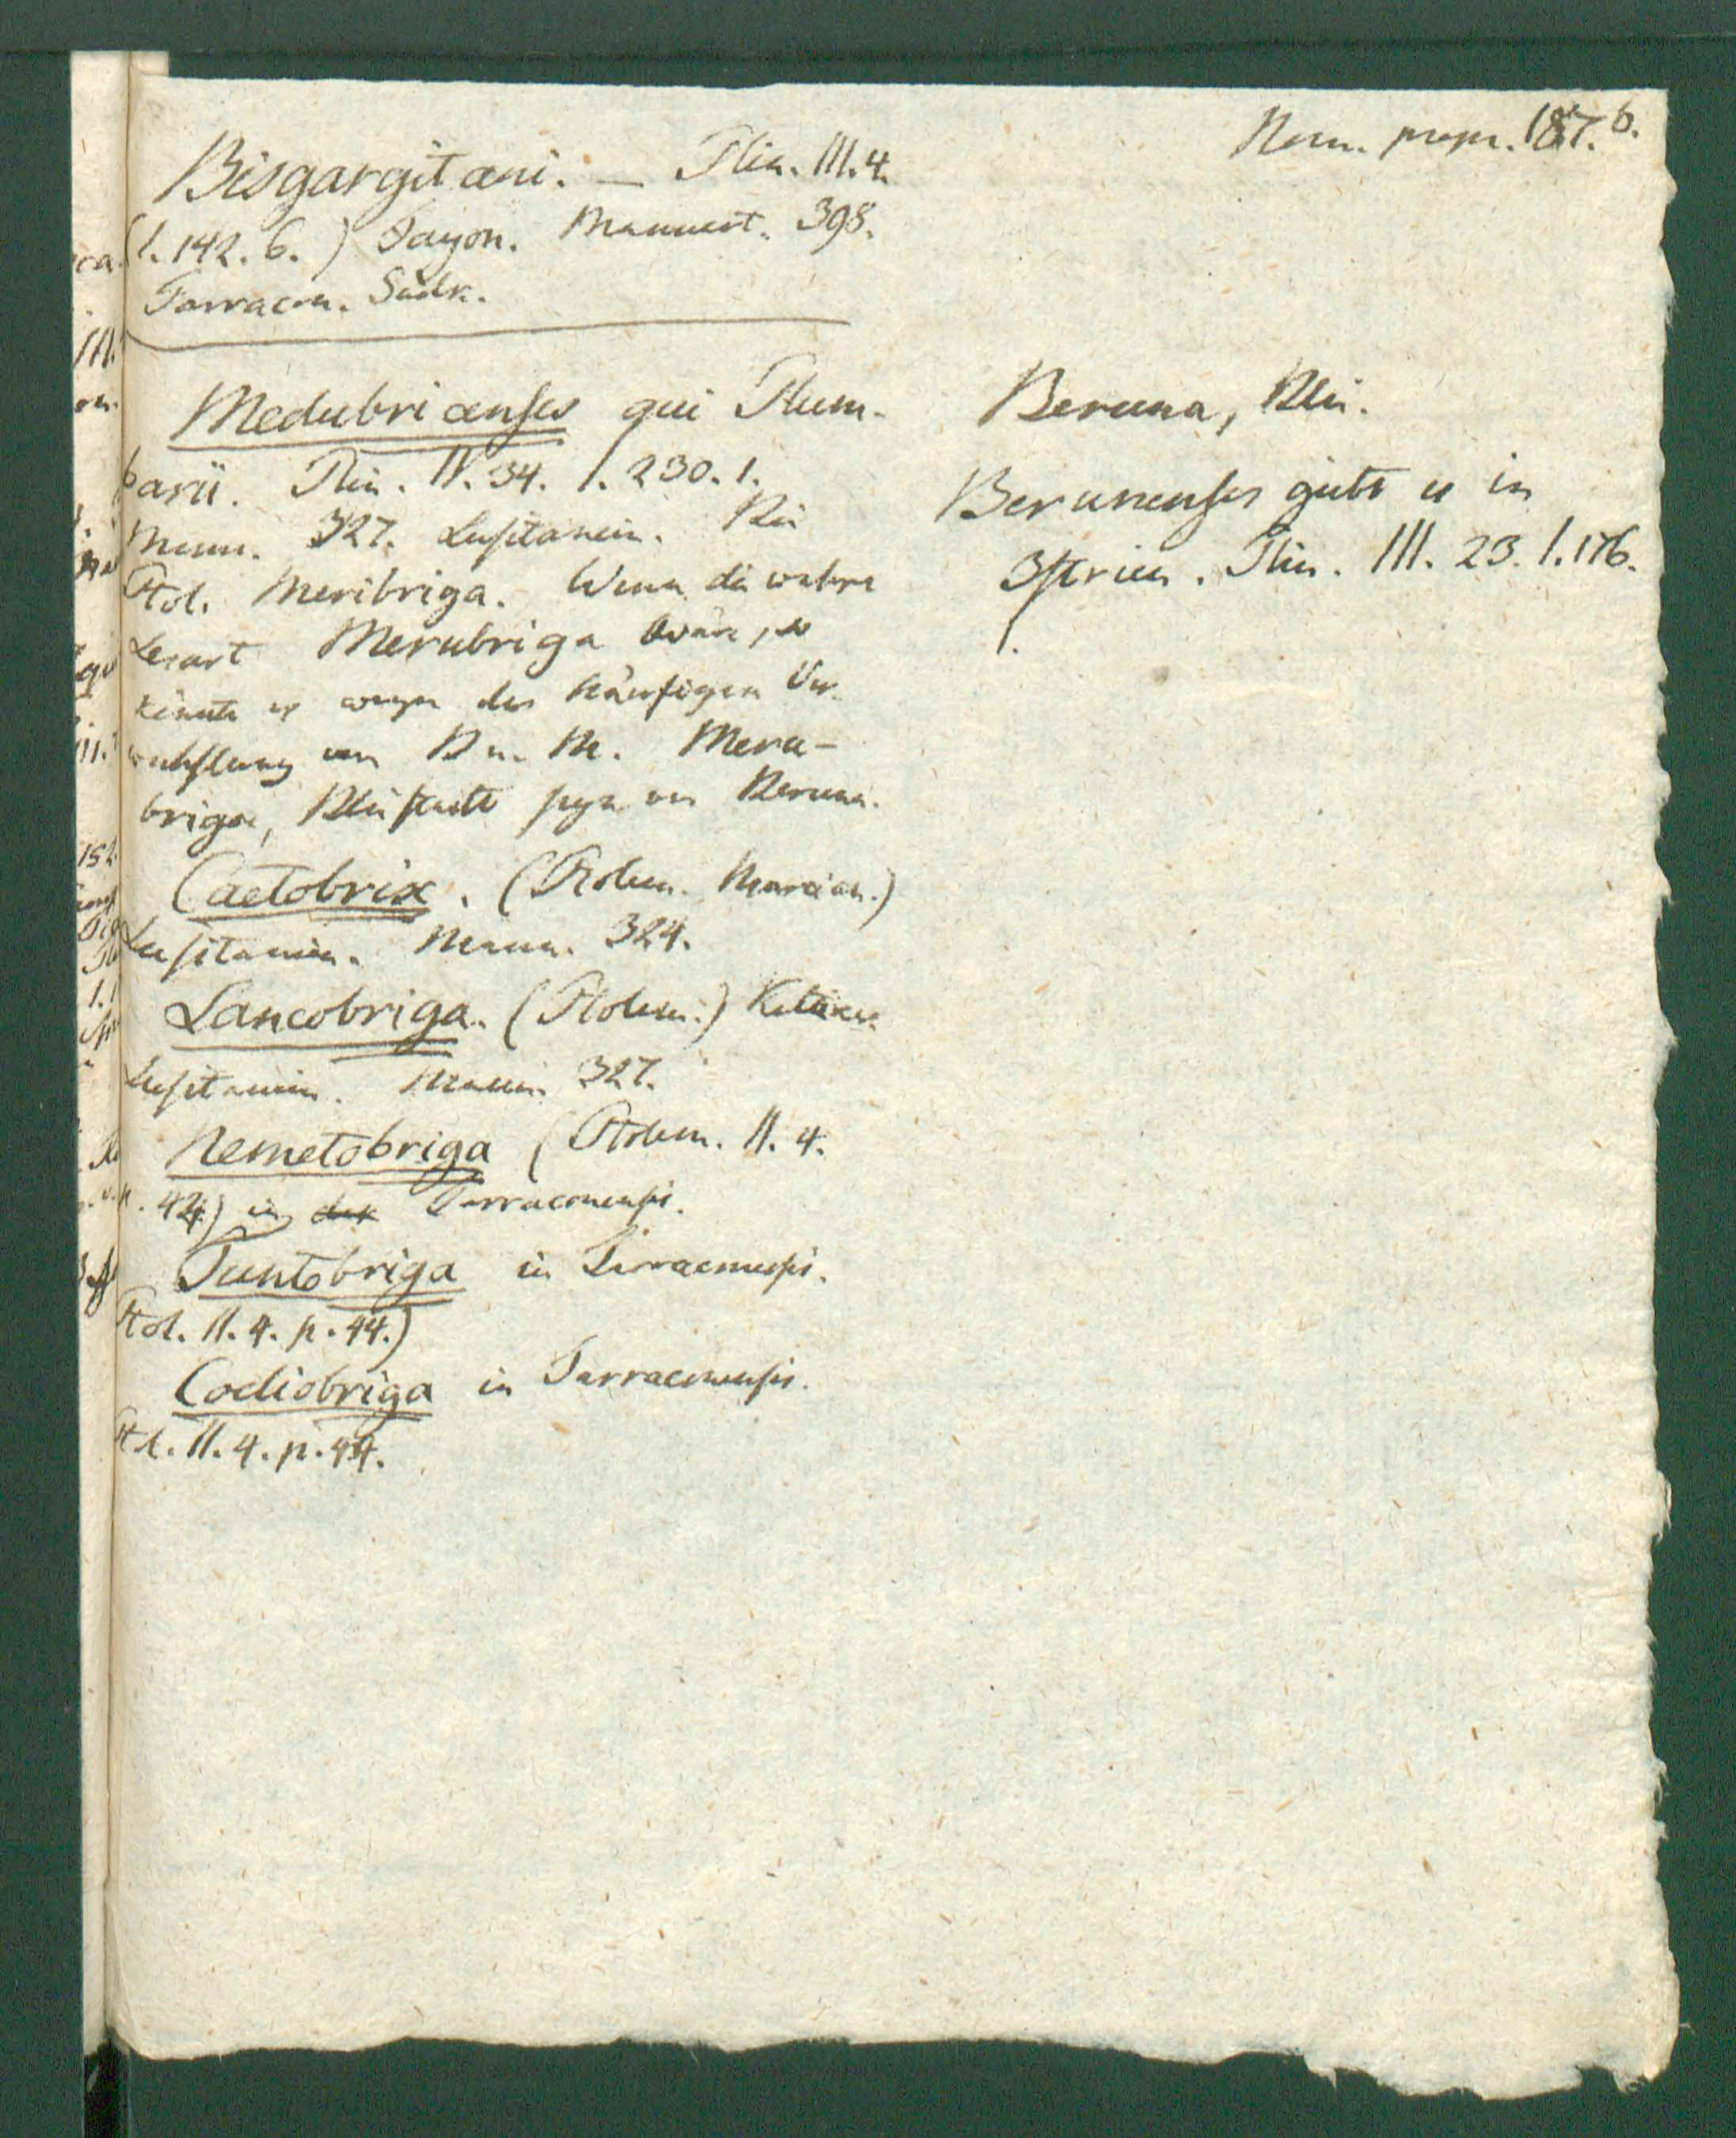 Nom. propr. 187. b.
Bisgargitani. — Plin. III. 4.
(1. 142. 6.) Jayon. Mannert. 398.
Tarracon. Südk.
Medubricenses qui Plum-
barii. Plin. IV. 34. 1. 230. 1.
Mann. 327. Lusitanien. Bei
Ptol. Meribriga. Wenn die wahre
Lesart Merubriga wäre, so
könnte es wegen der häufigen Ver-
wechslung von B u. M. Meru-
briga, Bleistadt seyn von Beruna.
Caetobrix. (Ptolem. Marcian.)
Lusitanien. Mann. 324.
Lancobriga. (Ptolem.)
Lusitanien. Mann. 327.
Nemetobriga (Ptolem. II. 4.
p. 42.) in der Tarraconensis.
Tuntobriga in Tarraconensis.
Ptol. II. 4. p. 44.)
Coeliobriga in Tarraconensis.
Ptol. II. 4. p. 44.
Beruna, Blei.
Berunenses giebt es in
Istrien. Plin. III. 23. 1. 176.
1.